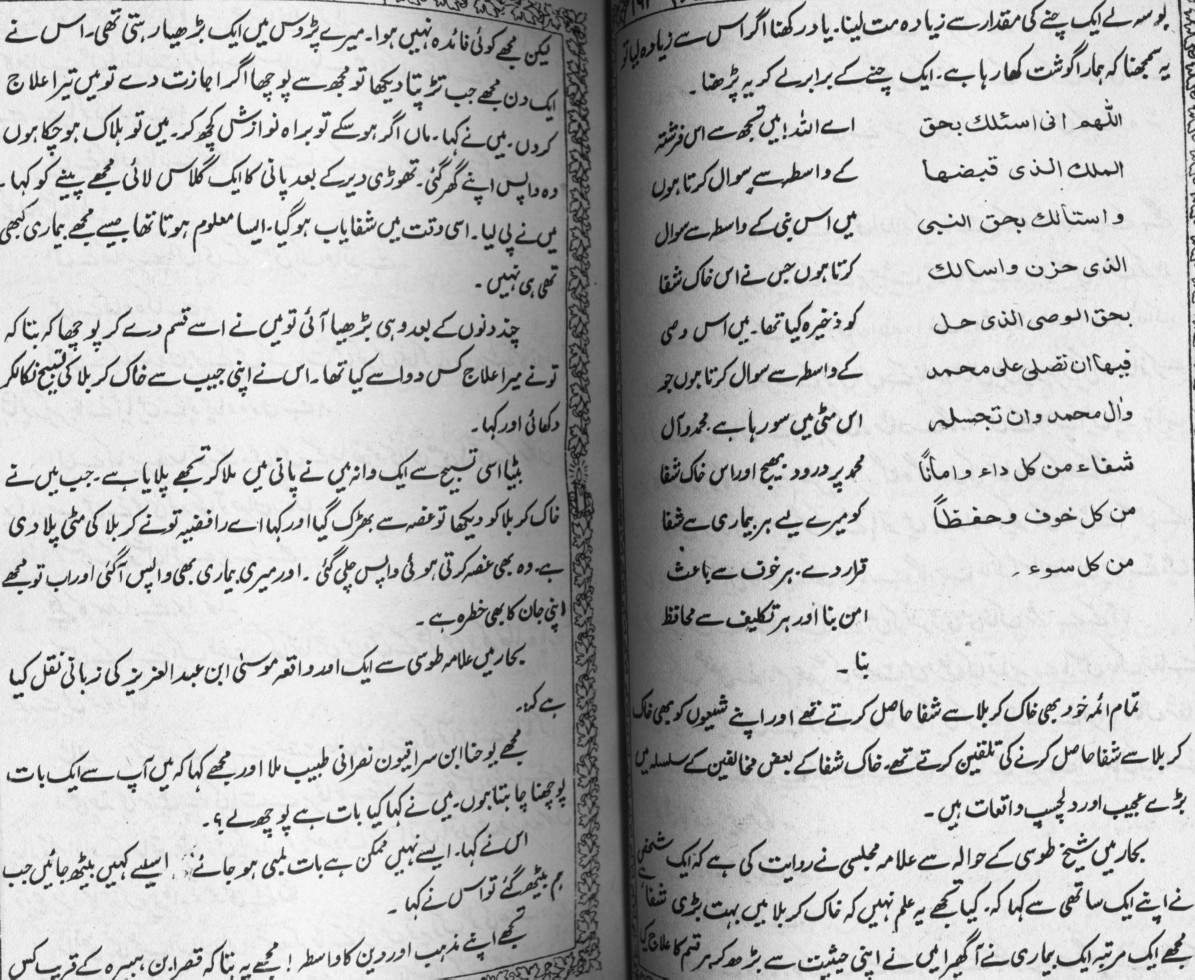 بوسہ لے ایک چنے کی مقدار سے زیادہ مت لینا۔ یاد رکھنا اگر اس سے زیادہ لیا تو
یہ سمجھنا کہ ہمارا گوشت کھا رہا ہے۔ ایک چنے کے برابر لے کر یہ پڑھنا۔
اللھم انی اسئلک بحق اے اللہ! میں تجھ سے اس فرشتہ
الملک الذی قبضھا کے واسطہ سے سوال کرتا ہوں
و استألک بحق النبی میں اس نبی کے واسطہ سے سوال
الذی حزن و اسالک کرتا ہوں جس نے اس خاک شفا
بحق الوصی الذی حل کو ذخیرہ کیا تھا۔ میں اس وصی
فیھا ان تصلی علی محمد کے واسطہ سے سوال کرتا ہوں جو
واٰل محمد وان تجسلہ اس مٹی میں سو رہا ہے۔ محمد و آل
شفاء من کل داء و اماناً محمد پر درود بھیج اور اس خاک شفا
من کل خوف و حفظاً کو میرے لیے ہر بیماری سے شفا
من کل سوء۔ قرار دے۔ ہر خوف سے باعث
امن بنا اور ہر تکلیف سے محافظ
بنا۔
تمام ائمہ خود بھی خاک کربلا سے شفا حاصل کرتے تھے اور اپنے شیعوں کو بھی خاک
کربلا سے شفا حاصل کرنے کی تلقین کرتے تھے۔ خاک شفا کے بعض مخالفین کے سلسلہ میں
بڑے عجیب اور دلچسپ واقعات ہیں۔
بحار میں شیخ طوسی کے حوالہ سے علامہ مجلسی نے روایت کی ہے کہ ایک شخص
نے اپنے ایک ساتھی سے کہا کہ۔ کیا تجھے یہ علم نہیں کہ خاک کربلا میں بہت بڑی شفا
مجھے ایک مرتبہ ایک بیماری نے آ گھیرا میں نے اپنی حیثیت سے بڑھ کر ہر قسم کا علاج کیا
لیکن مجھے کوئی فائدہ نہیں ہوا۔ میرے پڑوس میں ایک بڑھیا رہتی تھی۔ اس نے
ایک دن مجھے جب تڑپتا دیکھا تو مجھ سے پوچھا اگر اجازت دے تو میں تیرا علاج
کروں۔ میں نے کہا۔ ماں اگر ہو سکے تو براہ نوازش کچھ کر۔ میں تو ہلاک ہو چکا ہوں
وہ واپس اپنے گھر گئی۔ تھوڑی دیر کے بعد پانی کا ایک گلاس لائی مجھے پینے کو کہا۔
میں نے پی لیا۔ اسی وقت میں شفایاب ہو گیا۔ ایسا معلوم ہوتا تھا جیسے مجھے بیماری کبھی
تھی ہی نہیں۔
چند دنوں کے بعد وہی بڑھیا آئی تو میں نے اسے قسم دے کر پوچھا کہ بتا کہ
تو نے میرا علاج کس دوا سے کیا تھا۔ اس نے اپنی جیب سے خاک کربلا کی تسبیح نکالکر
دکھائی اور کہا۔
بیٹا اسی تسبیح سے ایک دانہ میں نے پانی میں ملا کر تجھے پلایا ہے۔ جب میں نے
خاک کربلا کو دیکھا تو غصہ سے بھڑک گیا اور کہا اے رافضیہ تو نے کربلا کی مٹی پلا دی
ہے۔ وہ بھی غصہ کرتی ہوئی واپس چلی گئی۔ اور میری بیماری بھی واپس آگئی اور اب تو مجھے
اپنی جان کا بھی خطرہ ہے۔
بحار میں علامہ طوسی سے ایک اور واقعہ موسیٰ ابن عبد العزیز کی زبانی نقل کیا
ہے کہ:۔
مجھے یوحنا ابن سراقیون نصرانی طبیب ملا اور مجھے کہا کہ میں آپ سے ایک بات
پوچھنا چاہتا ہوں۔ میں نے کہا کیا بات ہے پوچھ لے؟۔
اس نے کہا۔ ایسے نہیں ممکن ہے بات لمبی ہو جائے۔ اسلیے کہیں بیٹھ جائیں جب
ہم بیٹھ گئے تو اس نے کہا۔
تجھے اپنے مذہب اور دین کا واسطہ! مجھے یہ بتا کہ قصر ابن ہبیرہ کے قریب کس